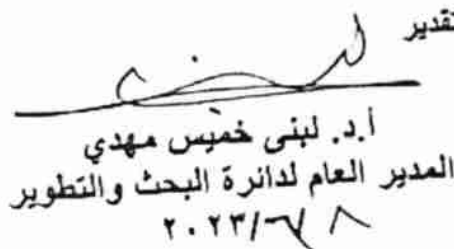 تقدير
أ.د. لبنى خميس مهدي
المدير العام لدائرة البحث والتطوير
٢٠٢٣/٦/٨